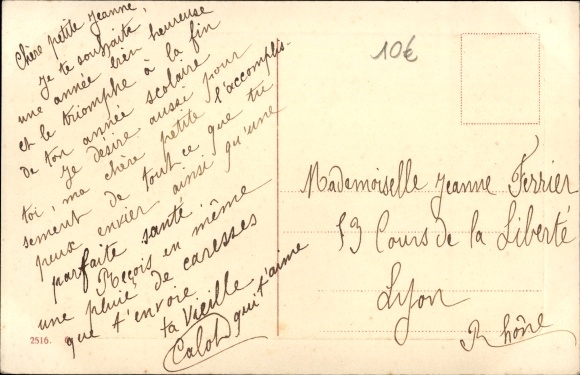 Chère petite Jeanne,
Je te souhaite,
une année bien heureuse
et le triomphe à la fin
de ton année scolaire
Je désire aussi pour
toi, ma chère petite l'accomplis-
sement de tout ce que tu
peux envier ainsi qu'une
parfaite santé.
Reçois en même
une pluie de caresses
que t'envoie
ta Vieille
Calot qui t'aime
10€
Mademoiselle Jeanne Ferrier
53 Cours de la Liberté
Lyon
Rhône
2516.